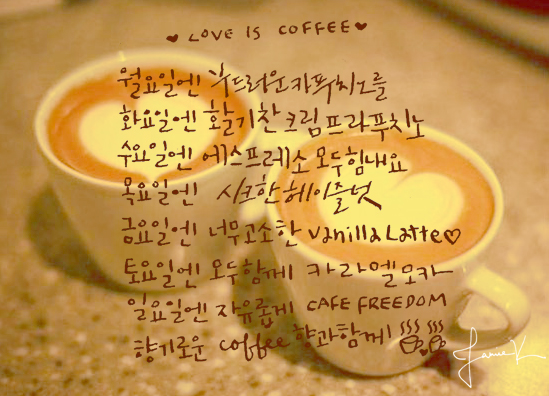 ♥ LOVE IS COFFEE ♥
월요일엔 부드러운 카푸치노를
화요일엔 활기찬 크림 프라푸치노
수요일엔 에스프레소 모두힘내요
목요일엔 시크한 헤이즐넛
금요일엔 너무고소한 Vanilla Latte♡
토요일엔 모두함께 카라멜모카
일요일엔 자유롭게 CAFE FREEDOM
향기로운 coffee 향과함께